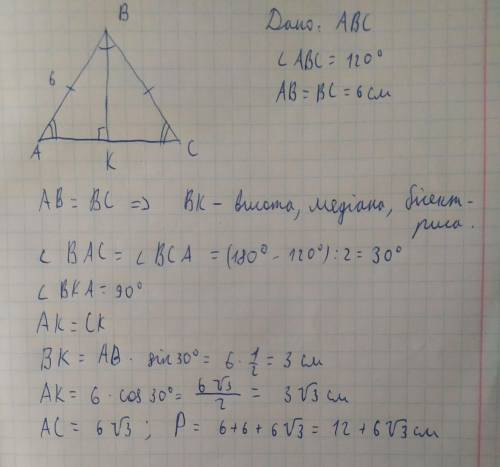 B
6
A
K
C
Дано: ABC
∠ABC = 120°
AB = BC = 6 см
AB = BC => BK - висота, медіана, бісект-
риса.
∠BAC = ∠BCA = (180° - 120°) : 2 = 30°
∠BKA = 90°
AK = CK
BK = AB · sin 30° = 6 · 1/2 = 3 см
AK = 6 · cos 30° = 6√3/2 = 3√3 см
AC = 6√3 ; P = 6+6+6√3 = 12+6√3 см